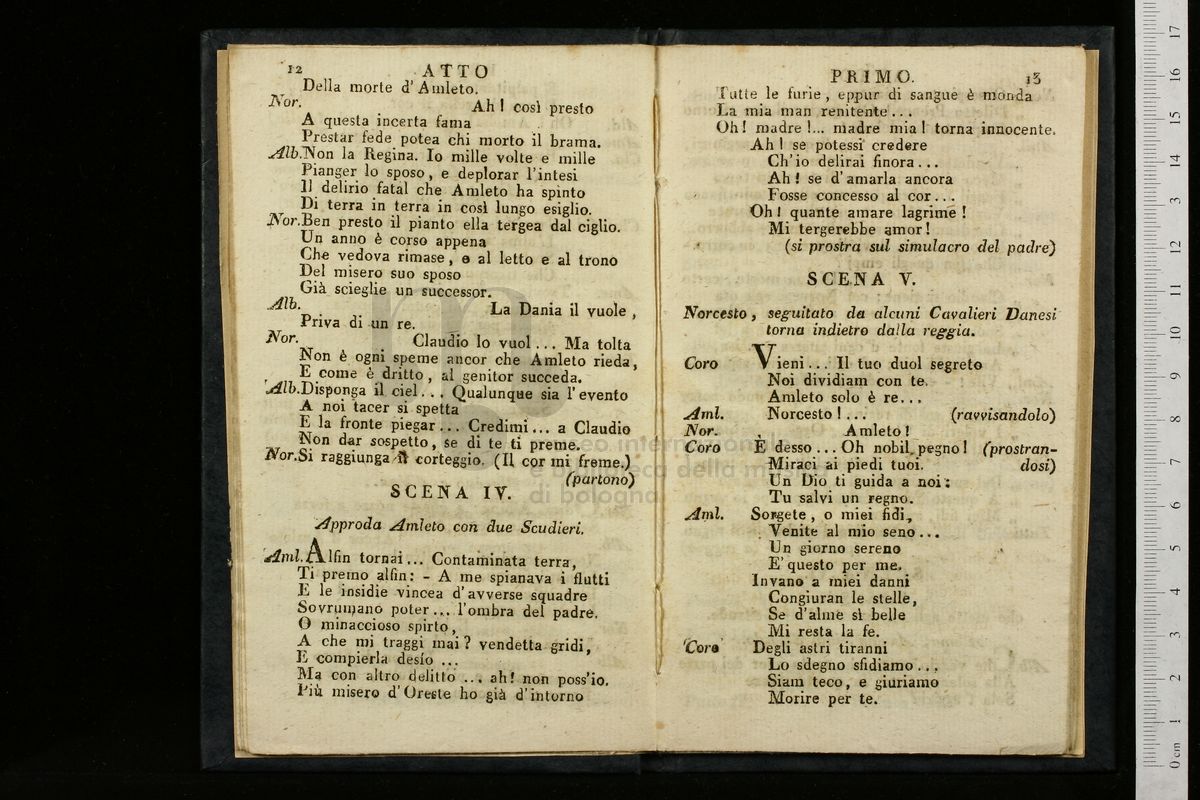 12 ATTO
Della morte d'Amleto.
Nor. Ah! così presto
A questa incerta fama
Prestar fede potea chi morto il brama.
Alb. Non la Regina. Io mille volte e mille
Pianger lo sposo, e deplorar l'intesi
Il delirio fatal che Amleto ha spinto
Di terra in terra in così lungo esiglio.
Nor. Ben presto il pianto ella tergea dal ciglio.
Un anno è corso appena
Che vedova rimase, e al letto e al trono
Del misero suo sposo
Già scieglie un successor.
Alb. La Dania il vuole,
Priva di un re.
Nor. Claudio lo vuol... Ma tolta
Non è ogni speme ancor che Amleto rieda,
E come è dritto, al genitor succeda.
Alb. Disponga il ciel... Qualunque sia l'evento
A noi tacer si spetta
E la fronte piegar... Credimi... a Claudio
Non dar sospetto, se di te ti preme.
Nor. Si raggiunga il corteggio. (Il cor mi freme.)
(partono)
SCENA IV.
Approda Amleto con due Scudieri.
Aml. Alfin tornai... Contaminata terra,
Ti premo alfin: - A me spianava i flutti
E le insidie vincea d'avverse squadre
Sovrumano poter... l'ombra del padre.
O minaccioso spirto,
A che mi traggi mai? vendetta gridi,
E compierla desio ...
Ma con altro delitto ... ah! non poss'io.
Più misero d'Oreste ho già d'intorno
PRIMO. 13
Tutte le furie, eppur di sangue è monda
La mia man renitente...
Oh! madre!... madre mia! torna innocente.
Ah! se potessi credere
Ch'io delirai finora...
Ah! se d'amarla ancora
Fosse concesso al cor...
Oh! quante amare lagrime!
Mi tergerebbe amor!
(si prostra sul simulacro del padre)
SCENA V.
Norcesto, seguitato da alcuni Cavalieri Danesi
torna indietro dalla reggia.
Coro Vieni... Il tuo duol segreto
Noi dividiam con te.
Amleto solo è re...
Aml. Norcesto!... (ravvisandolo)
Nor. Amleto!
Coro È desso... Oh nobil pegno! (prostran-
Miraci ai piedi tuoi. dosi)
Un Dio ti guida a noi:
Tu salvi un regno.
Aml. Sorgete, o miei fidi,
Venite al mio seno...
Un giorno sereno
E' questo per me.
Invano a miei danni
Congiuran le stelle,
Se d'alme sì belle
Mi resta la fe.
Coro Degli astri tiranni
Lo sdegno sfidiamo...
Siam teco, e giuriamo
Morire per te.
museo internazionale
e biblioteca della musica
di bologna
0 cm 1 2 3 4 5 6 7 8 9 10 11 12 3 14 15 16 17